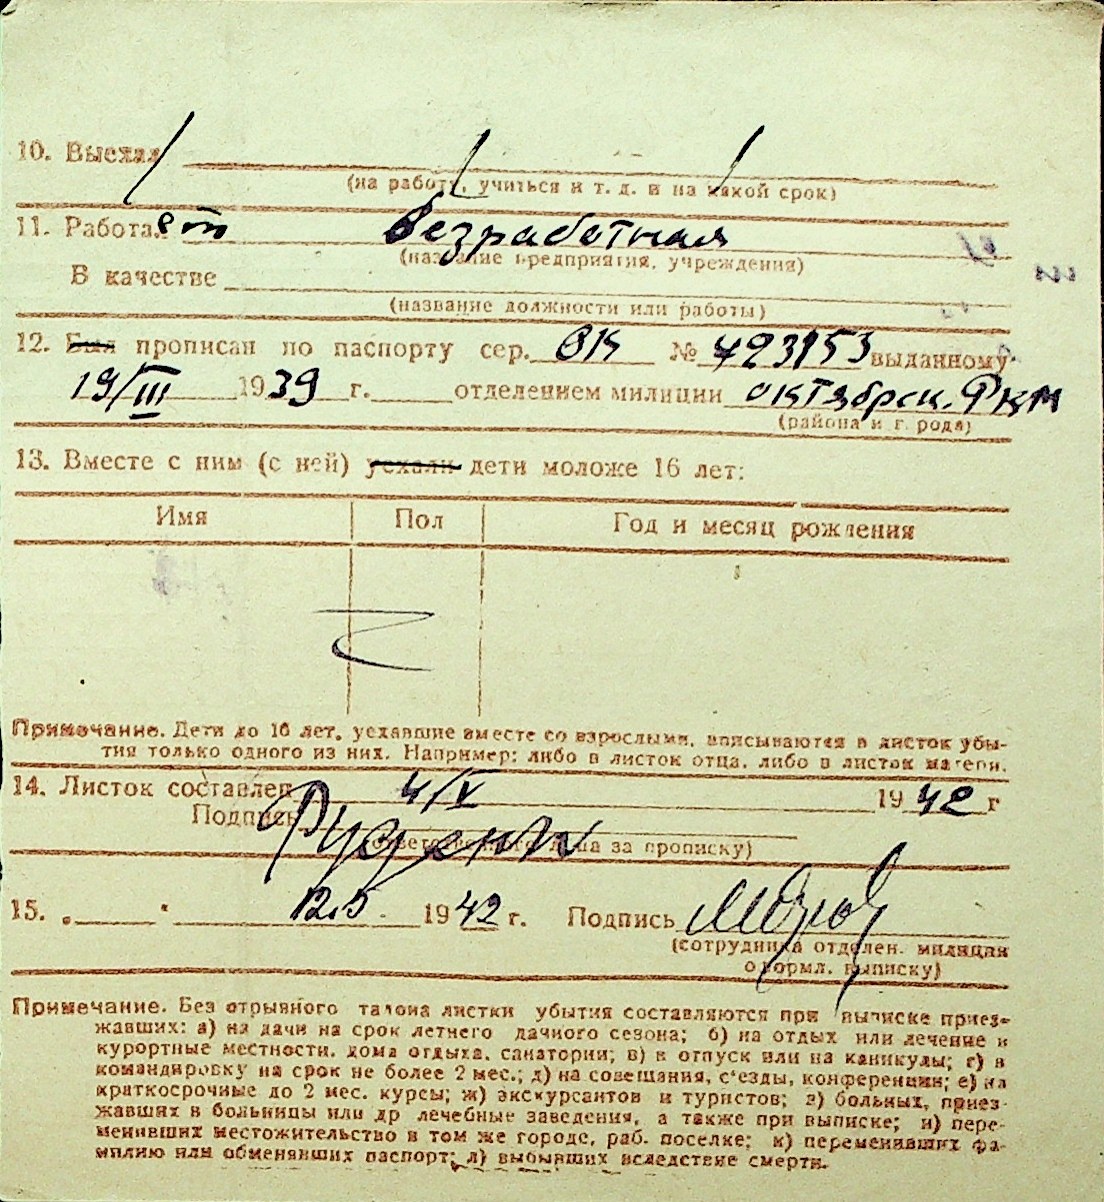 10. Выехал
(на работу, учиться и т. д. и на какой срок)
11. Работает безработная
(название предприятия, учреждения)
В качестве
(название должности или работы)
12. Был прописан по паспорту сер. ОК № 423153 выданному
19/III 1939 г. отделением милиции октябрск. РКМ
(района и города)
13. Вместе с ним (с ней) уехали дети моложе 16 лет:
Имя Пол Год и месяц рождения
Примечание. Дети до 16 лет, уехавшие вместе со взрослыми, вписываются в листок убы-
тия только одного из них. Например: либо в листок отца, либо в листок матери.
14. Листок составлен 4/V 1942 г
Подпись
(ответственного лица за прописку)
15. „ “ 12.5. 1942 г. Подпись
(сотрудника отделен. милиции
оформл. выписку)
Примечание. Без отрывного талона листки убытия составляются при выписке приез-
жавших: а) на дачи на срок летнего дачного сезона; б) на отдых или лечение в
курортные местности, дома отдыха, санатории; в) в отпуск или на каникулы; г) в
командировку на срок не более 2 мес.; д) на совещания, с'езды, конференции; е) на
краткосрочные до 2 мес. курсы; ж) экскурсантов и туристов; з) больных, приез-
жавших в больницы или др лечебные заведения, а также при выписке; и) пере-
менивших местожительство в том же городе, раб. поселке; к) переменивших фа-
милию или обменявших паспорт; л) выбывших вследствие смерти.